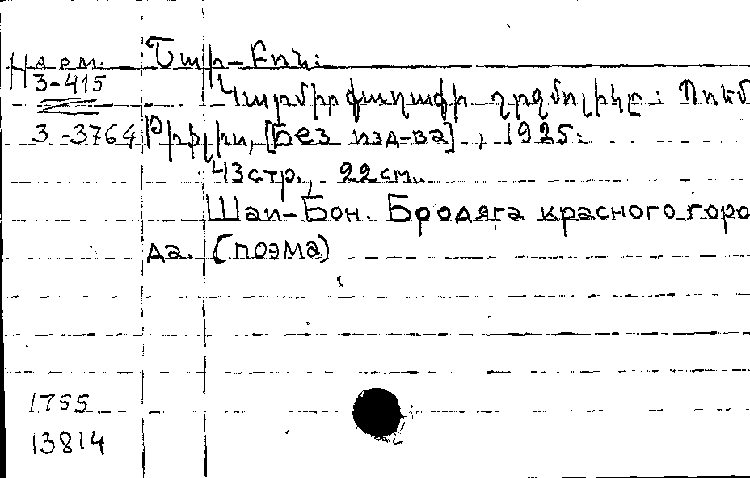 Н арм.
3-415
Շաի-Բոն:
Կարմիր քաղաքի դրզմոլիկը: Պոեմ
3-3764 Թիֆլիս, [Без изд-ва], 1925:
43 стр., 22 см.
Шаи-Бон. Бродяга красного горо
да. (поэма)
1755
13814